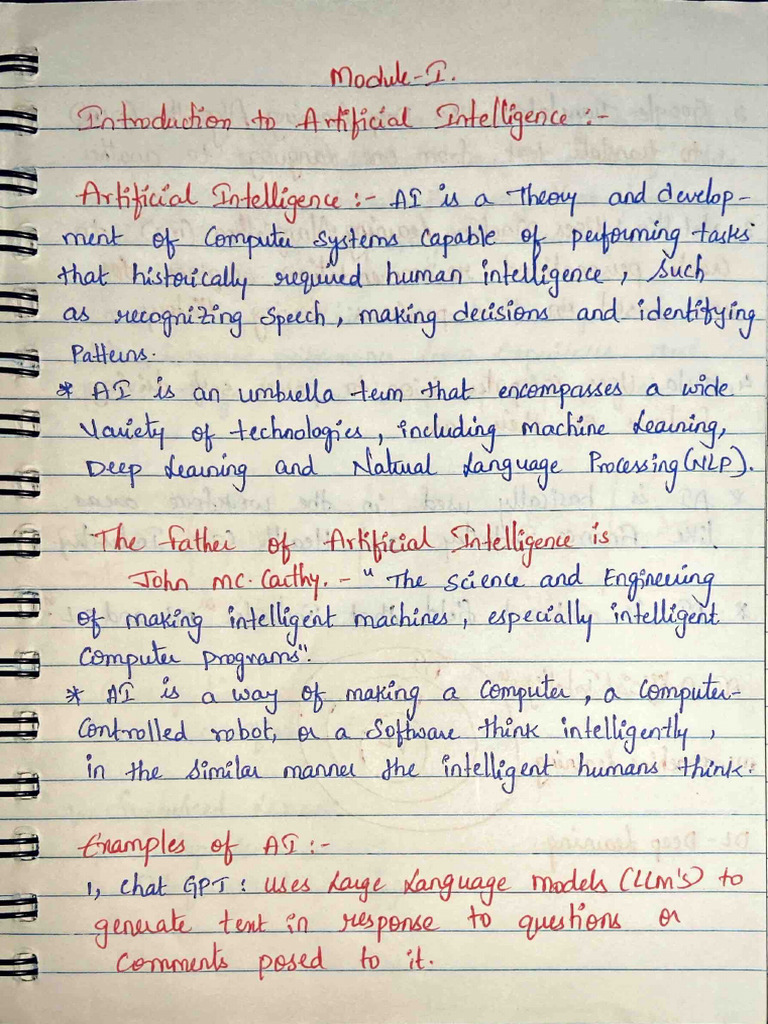 Module-I.
Introduction to Artificial Intelligence :-
Artificial Intelligence :- AI is a Theory and develop-
ment of Computer Systems capable of performing tasks
that historically required human intelligence, such
as recognizing Speech, making decisions and identifying
Patterns.
* AI is an umbrella term that encompasses a wide
Variety of technologies, including machine Learning,
Deep Learning and Natural Language Processing (NLP).
The father of Artificial Intelligence is
John mc. Carthy. - " The Science and Engineering
of making intelligent machines, especially intelligent
Computer programs".
* AI is a way of making a Computer, a Computer-
Controlled robot, or a Software think intelligently,
in the similar manner the intelligent humans think.
Examples of AI :-
1, Chat GPT : uses Large Language models (LLM's) to
generate text in response to questions or
Comments posed to it.